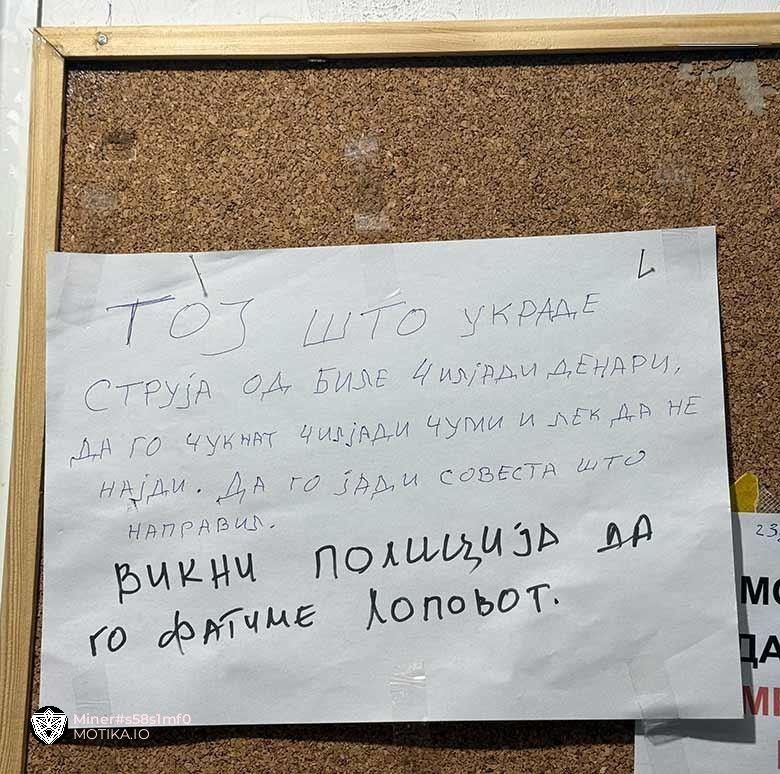 ТОЈ ШТО УКРАДЕ
СТРУЈА ОД БИЛЕ 4 ИЛЈАДИ ДЕНАРИ,
ДА ГО ЧУКНАТ 4 ИЛЈАДИ ЧУМИ И ЛЕК ДА НЕ
НАЈДИ. ДА ГО ЈАДИ СОВЕСТА ШТО
НАПРАВИЛ.
ВИКНИ ПОЛИЦИЈА ДА
ГО ФАТИМЕ ЛОПОВОТ.
23
ДА
Miner#s58s1mf0
MOTIKA.IO